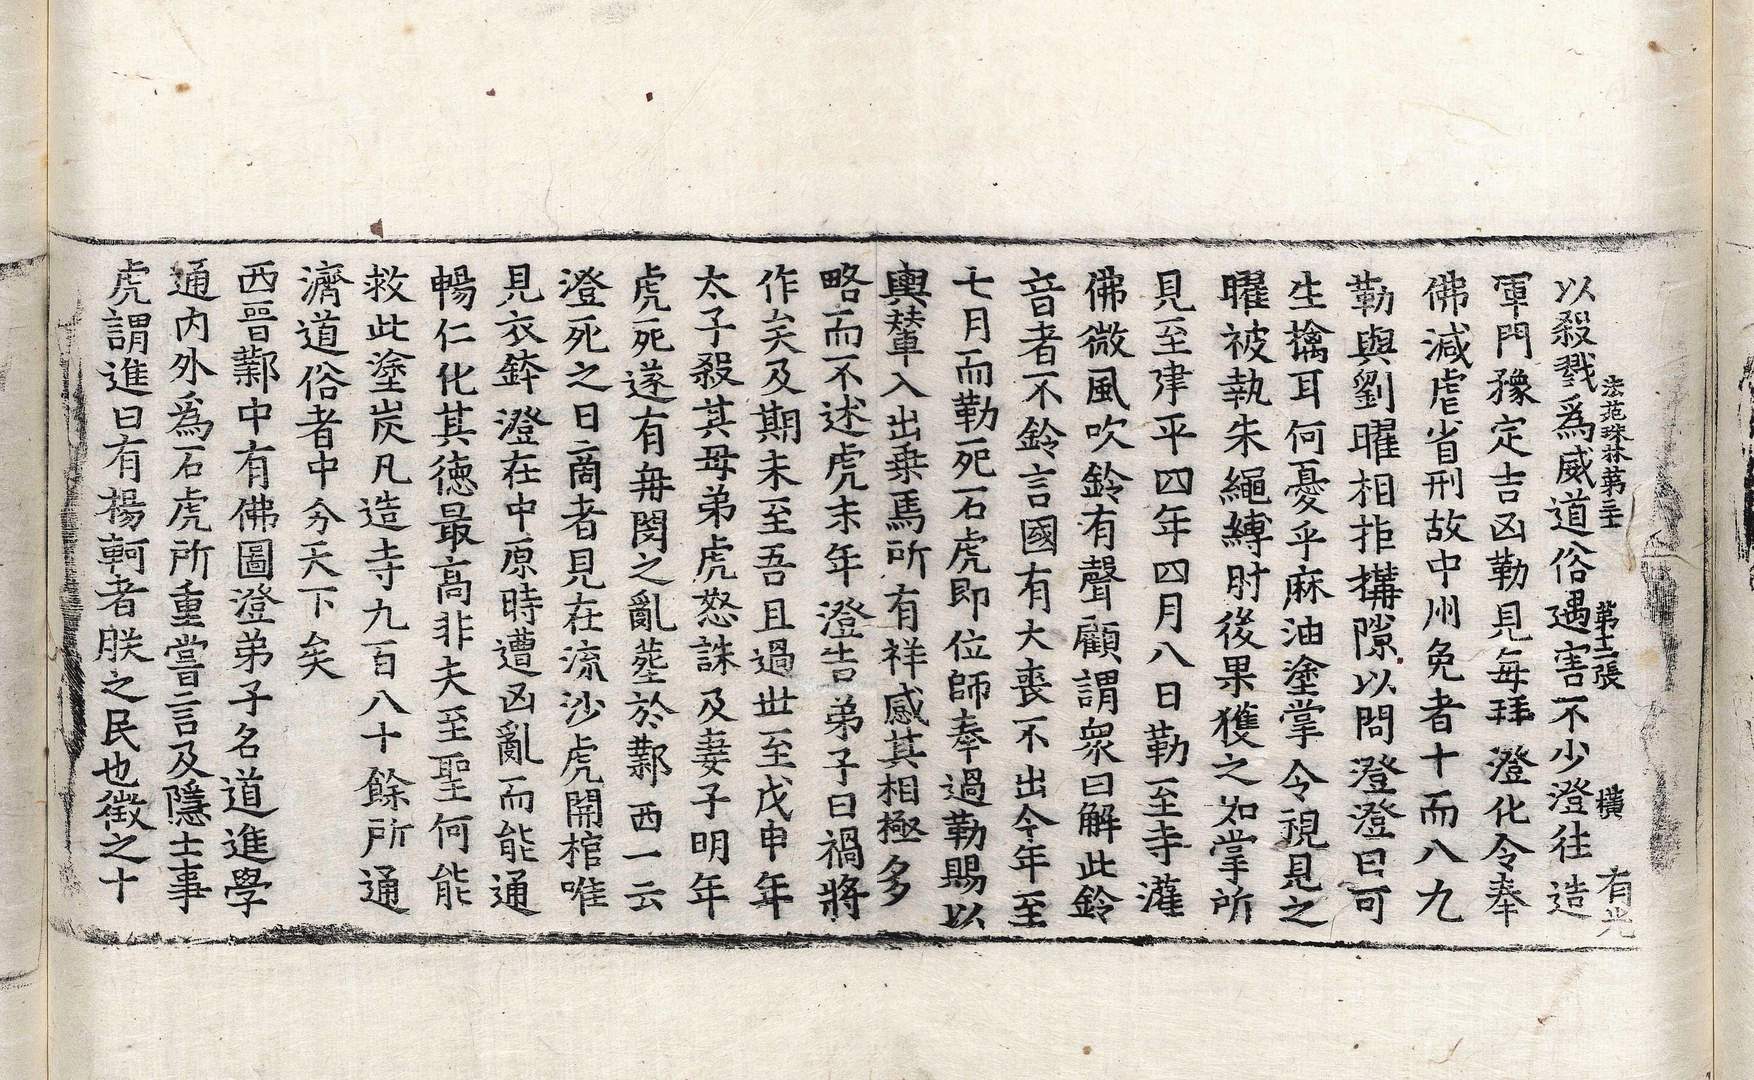 法苑珠林第三十一 第十二張 橫 有光
以殺戮爲威道俗遇害不少澄往造
軍門豫定吉凶勒見每拜澄化令奉
佛減虐省刑故中州免者十而八九
勒與劉曜相拒搆隙以問澄澄曰可
生擒耳何憂乎麻油塗掌令視見之
曜被執朱繩縛肘後果獲之如掌所
見至建平四年四月八日勒至寺灌
佛微風吹鈴有聲顧謂衆曰解此鈴
音者不鈴言國有大喪不出今年至
七月而勒死石虎即位師奉過勒賜以
輿輦車入出乗馬所有祥感其相極多
略而不述虎末年澄告弟子曰禍將
作矣及期未至吾且過世至戊申年
太子殺其母弟虎怒誅及妻子明年
虎死遂有冉閔之亂葬於鄴西一云
澄死之日商者見在流沙虎開棺唯
見衣鉢澄在中原時遭凶亂而能通
暢仁化其德最高非夫至聖何能
救此塗炭凡造寺九百八十餘所通
濟道俗者中分天下矣
西晉鄴中有佛圖澄弟子名道進學
通内外爲石虎所重嘗言及隱士事
虎謂進曰有楊軻者朕之民也徵之十